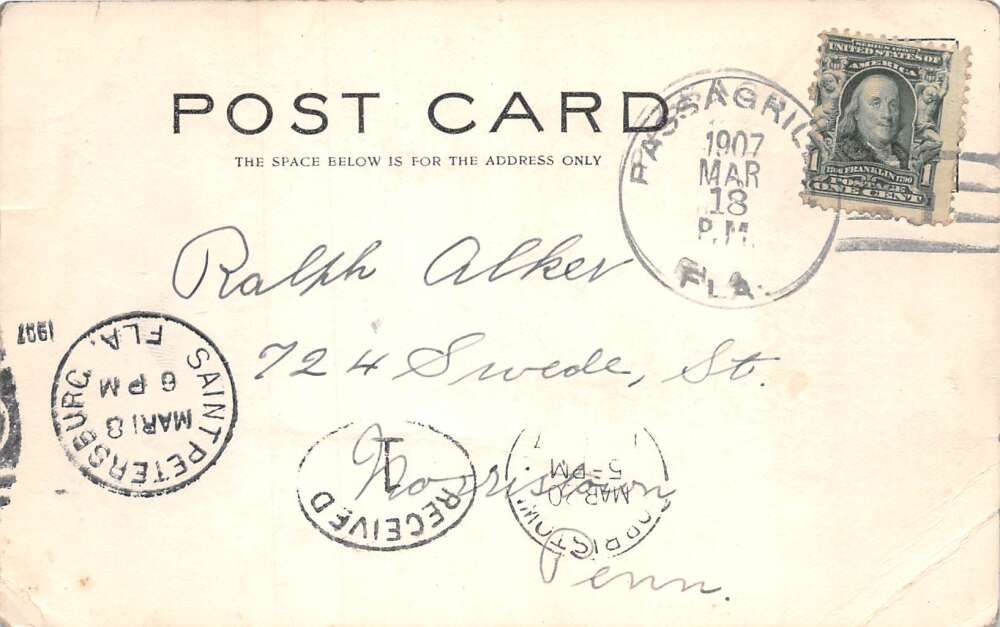 SERIES 1902
UNITED STATES OF
AMERICA
1706 FRANKLIN 1790
POSTAGE
1 ONE CENT 1
POST CARD
THE SPACE BELOW IS FOR THE ADDRESS ONLY
PASSAGRILLE
1907
MAR
18
P.M.
FLA.
Ralph Alker
724 Swede, St.
Norristown
Penn.
1907
SAINT PETERSBURG,
FLA.
MAR 18
6 PM
RECEIVED
1
MAR 20
5 - PM